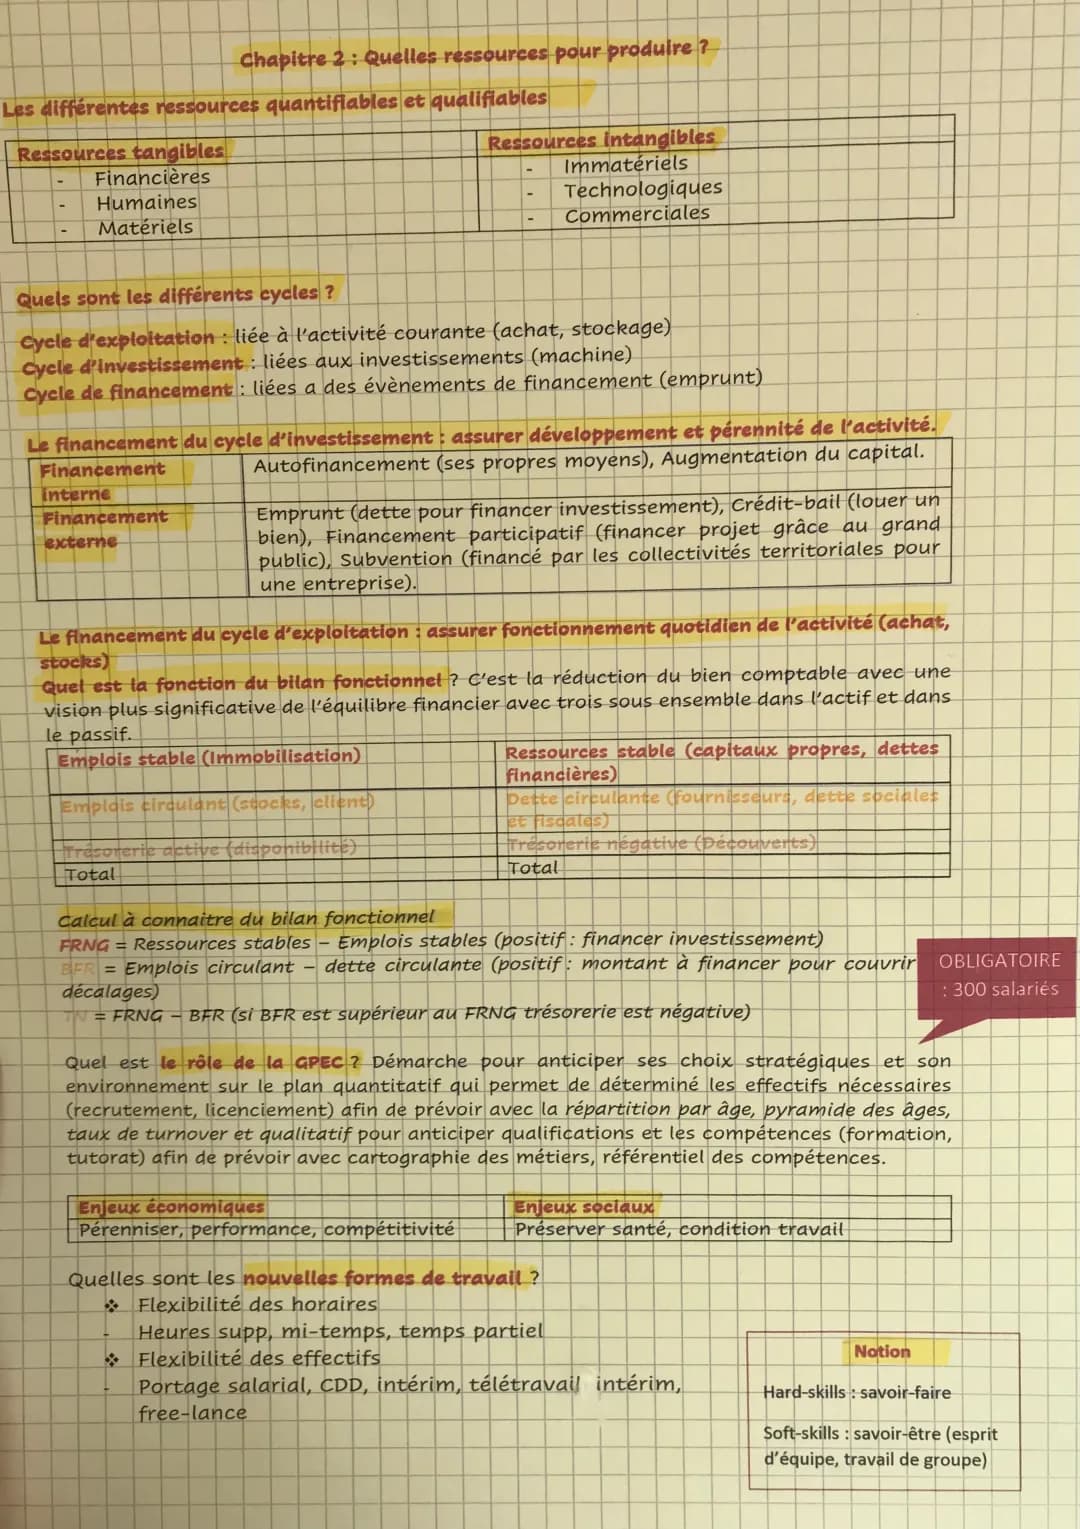 Chapitre 2 : Quelles ressources pour produire ?
Les différentes ressources quantifiables et qualifiables
Ressources tangibles
- Financières
- Humaines
- Matériels
Ressources intangibles
- Immatériels
- Technologiques
- Commerciales
Quels sont les différents cycles ?
Cycle d'exploitation : liée à l'activité courante (achat, stockage)
Cycle d'investissement : liées aux investissements (machine)
Cycle de financement : liées a des évènements de financement (emprunt)
Le financement du cycle d'investissement : assurer développement et pérennité de l'activité.
Financement
interne
Autofinancement (ses propres moyens), Augmentation du capital.
Financement
externe
Emprunt (dette pour financer investissement), Crédit-bail (louer un
bien), Financement participatif (financer projet grâce au grand
public), Subvention (financé par les collectivités territoriales pour
une entreprise).
Le financement du cycle d'exploitation : assurer fonctionnement quotidien de l'activité (achat,
stocks)
Quel est la fonction du bilan fonctionnel ? C'est la réduction du bien comptable avec une
vision plus significative de l'équilibre financier avec trois sous ensemble dans l'actif et dans
le passif.
Emplois stable (Immobilisation)
Ressources stable (capitaux propres, dettes
financières)
Emplois circulant (stocks, client)
Dette circulante (fournisseurs, dette sociales
et fiscales)
Trésorerie active (disponibilité)
Trésorerie négative (Découverts)
Total
Total
Calcul à connaitre du bilan fonctionnel
FRNG = Ressources stables – Emplois stables (positif : financer investissement)
BFR = Emplois circulant – dette circulante (positif : montant à financer pour couvrir
décalages)
TN = FRNG – BFR (si BFR est supérieur au FRNG trésorerie est négative)
OBLIGATOIRE
: 300 salariés
Quel est le rôle de la GPEC ? Démarche pour anticiper ses choix stratégiques et son
environnement sur le plan quantitatif qui permet de déterminé les effectifs nécessaires
(recrutement, licenciement) afin de prévoir avec la répartition par âge, pyramide des âges,
taux de turnover et qualitatif pour anticiper qualifications et les compétences (formation,
tutorat) afin de prévoir avec cartographie des métiers, référentiel des compétences.
Enjeux économiques
Enjeux sociaux
Pérenniser, performance, compétitivité
Préserver santé, condition travail
Quelles sont les nouvelles formes de travail ?
❖ Flexibilité des horaires
- Heures supp, mi-temps, temps partiel
❖ Flexibilité des effectifs
- Portage salarial, CDD, intérim, télétravail intérim,
free-lance
Notion
Hard-skills : savoir-faire
Soft-skills : savoir-être (esprit
d'équipe, travail de groupe)